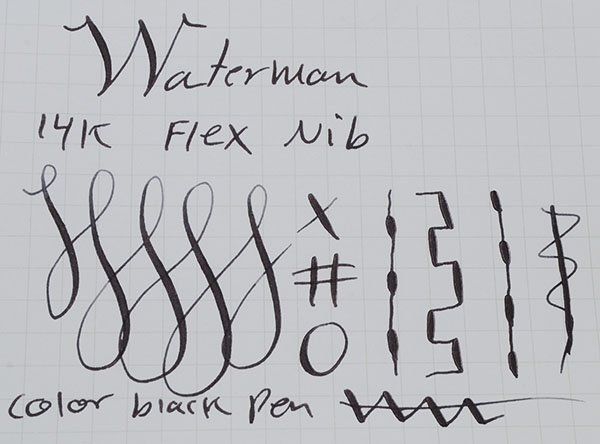 Waterman
14K Flex Nib
X
#
O
color black pen